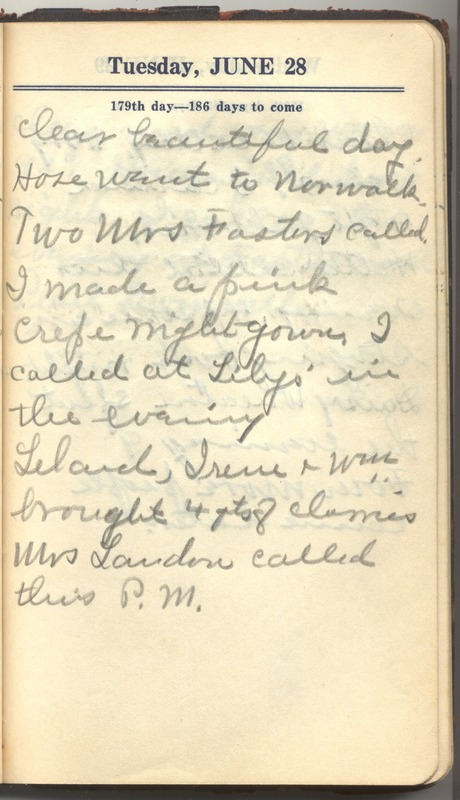 Tuesday, JUNE 28
179th day—186 days to come
Clear beautiful day.
Hose went to Norwalk.
Two Mrs Fosters called.
I made a pink
crepe nightgown, I
called at Lilys' in
the evening
Leland, Irene & Wm
brought 4 qts of clams
Mrs Landon called
this P.M.